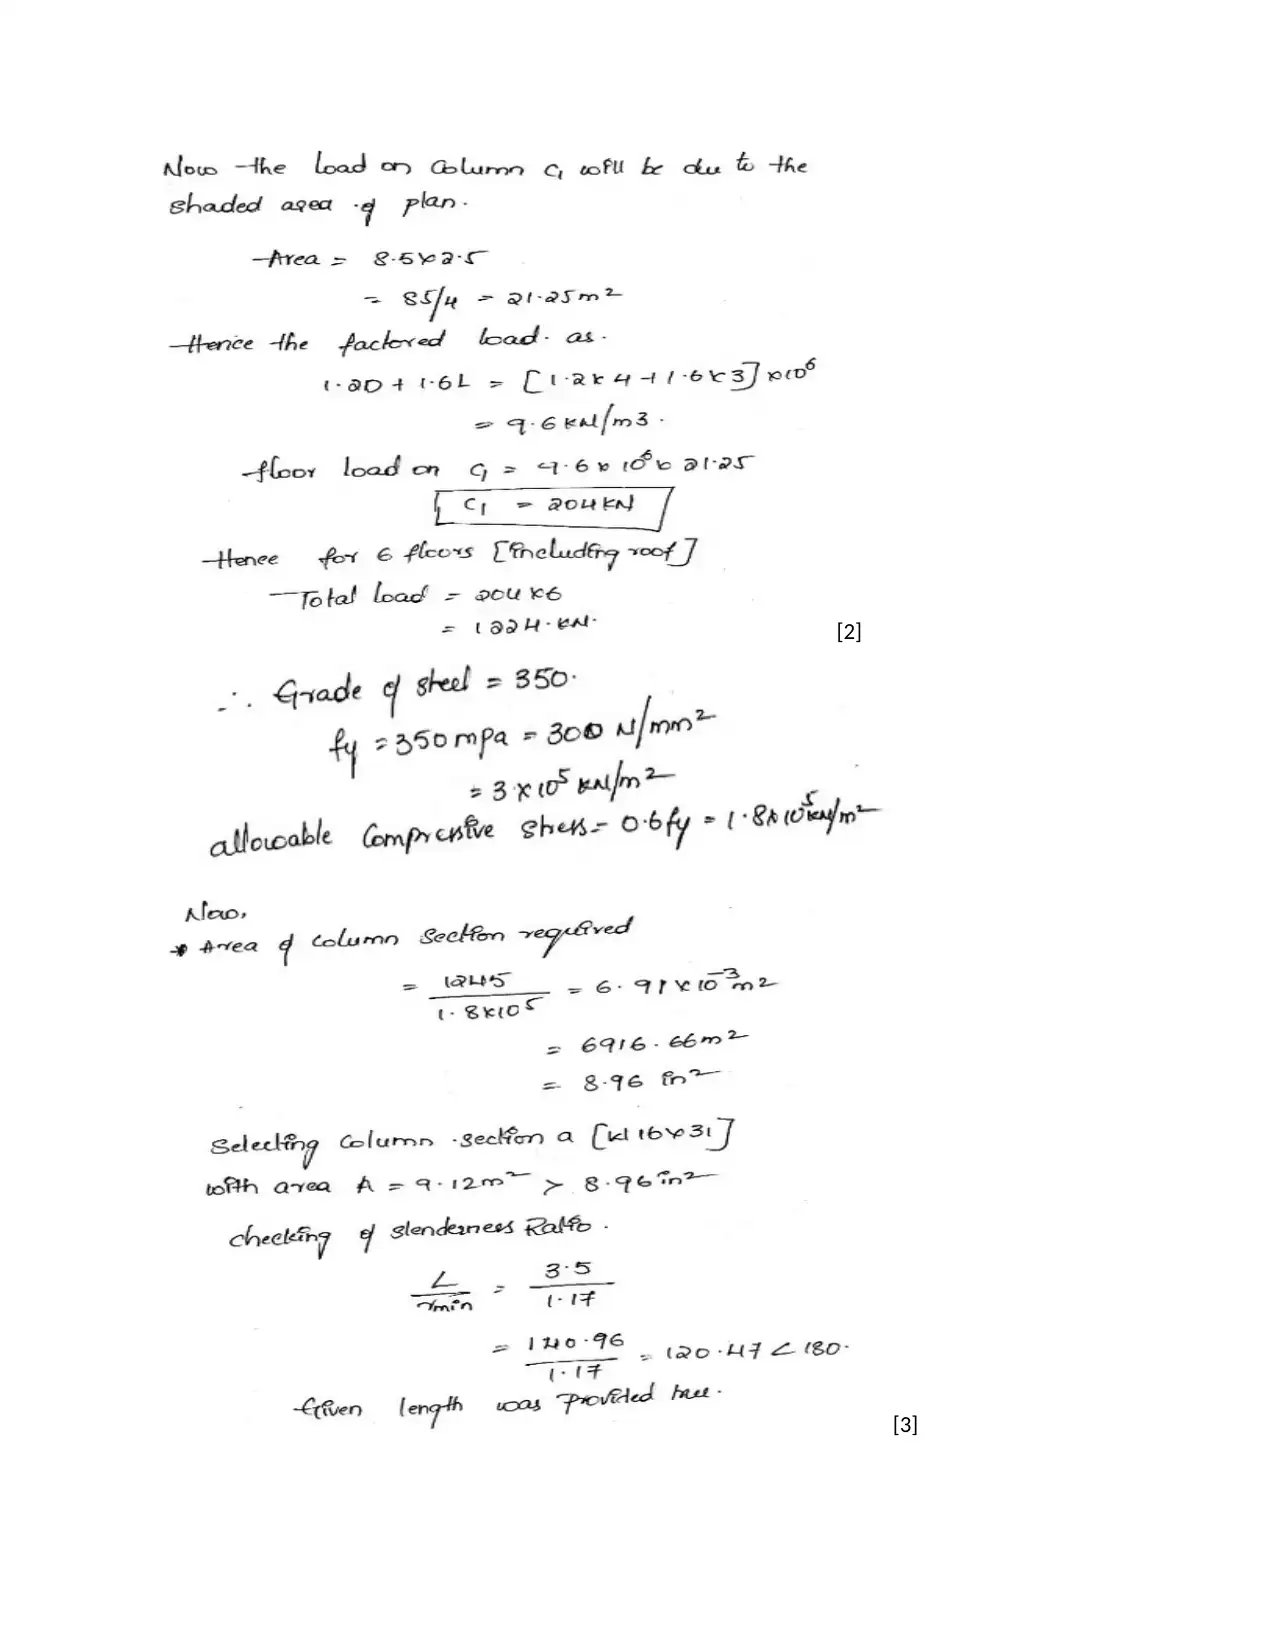 Now the load on Column C1 will be due to the
shaded area of plan.
Area = 8.5x2.5
= 85/4 = 21.25m2
Hence the factored load. as.
1.2D + 1.6L = [1.2x4+1.6x3]x10^6
= 9.6 kN/m3.
floor load on C1 = 9.6 x 10^6 x 21.25
C1 = 204kN
Hence for 6 floors [including roof]
Total load = 204x6
= 1224.kN.
[2]
∴ Grade of steel = 350.
fy = 350mpa = 300 N/mm2
= 3x10^5 kN/m2
allowable Compressive stress = 0.6fy = 1.8x10^5 kN/m2
Now,
* Area of column section required
= 1245/1.8x10^5 = 6.91x10^-3 m2
= 6916.66m2
= 8.96 in2
Selecting Column section a [W16x31]
with area A = 9.12m2 > 8.96in2
checking of slenderness Ratio.
L/rmin = 3.5/1.17
= 140.96/1.17 = 120.47 < 180.
Given length was provided true.
[3]